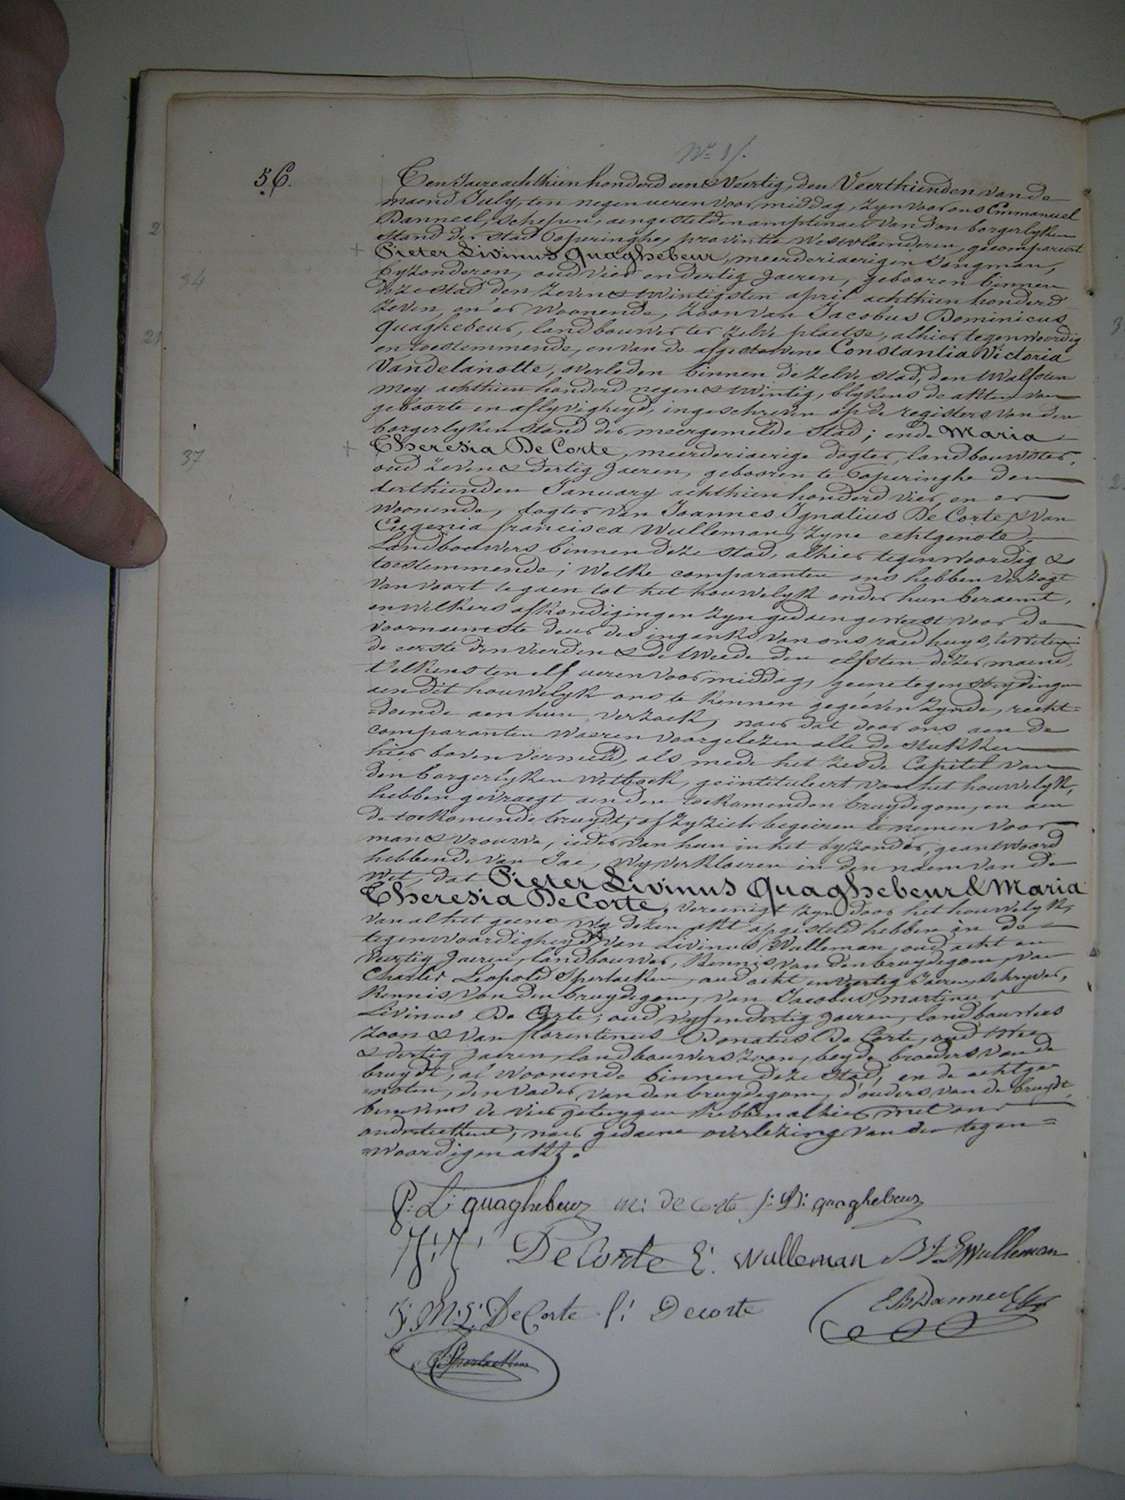 56.
Een Jaere achthien honderd een & Veertig, den Veerthienden van de
maend July, ten negen ueren voormiddag, Zyn voor ons Emmanuel
Danneel, Schepen, aengestelden amptenaer van den borgerlyken
Stand der stad Poperinghe, provintie Westvlaenderen, gecompareert
Pieter Livinus Quaghebeur, meerderjaerigen Jongman,
byzonderen, oud Vier en dertig Jaeren, gebooren binnen
deze stad, den Zeven & twintigsten april achthien honderd
Zeven, en er Woonende, Zoon van Jacobus Dominicus
Quaghebeur, landbouwer ter zelve plaetse, alhier tegenwoordig
en toestemmende, en van de afgestorvene Constantia Victoria
Vandelanotte, overleden binnen dezelve stad, den twalfsten
mey achthien honderd negen & twintig, blykens de akten van
geboorte en aflyvigheyd, ingeschreven op de registers van den
borgerlyken stand der meergemelde stad; ende Maria
Theresia De Corte, meerderjaerige dogter, landbouwster,
oud Zeven & dertig Jaeren, gebooren te Poperinghe den
derthienden January achthien honderd vier, en er
Woonende, dogter van Joannes Ignatius De Corte, & van
Eugenia francisca Wulleman, Zyne echtgenote,
Landbouwers binnen deze stad, alhier tegenwoordig &
toestemmende; Welke comparanten ons hebben verzogt
van voort te gaen tot het houwelyk onder hun beraemt,
en welkers afkondigingen zyn gedaen geweest voor de
voornaemste deur den ingank van ons raedhuys, te weten:
de eerste den vierden & de tweede den elfsten dezer maend,
telkens ten elf ueren voormiddag, geene tegenstrydingen
aen dit houwelyk ons te kennen gegeeven zynde, recht=
=doende aen hun verzoek, naer dat door ons aen de
comparanten waeren voorgelezen alle de stukken
hier boven vermeld, als mede het zesde Capitel van
den borgerlyken Wetboek, geïntituleert van het houwelyk,
hebben gevraegt aen den toekomenden bruydegom, en aen
de toekomende bruydt, of zy zich begeiren te nemen voor
man & vrouwe, ieder van hun in het byzonder, geantwoord
hebbende van Jae, Wy verklaeren in den naem van de
Wet, dat Pieter Livinus Quaghebeur & Maria
Theresia De Corte, vereenigt zyn door het houwelyk,
van al het geene wy dezen akt opgesteld hebben in de
tegenwoordigheyd van Livinus Wulleman, oud acht en
Veertig Jaeren, landbouwer, Kennis van den bruydegom, van
Charles Leopold Sperlaeken, oud acht en veertig Jaeren, schryver,
Kennis van den bruydegom, van Jacobus Martinus
Livinus De Corte, oud vyf en dertig Jaeren, landbouwers
zoon & van florentinus Donatus De Corte, oud twee
& dertig Jaeren, landbouwers zoon, beyde broeders van de
bruydt, al woonende binnen deze stad, en de echtge=
=noten, den vader van den bruydegom, d'ouders van de bruydt,
benevens de vier getuygen hebben alhier met ons
onderteekent, naer gedaene overlezing van den tegen=
=woordigen akt.
P: L: quaghebeur m: de Corte J: D: quaghebeur
J: J: De Corte E: Wulleman Wulleman
J: M: L: De Corte f: Decorte E Danneel
Sperlaeken
2
34
21
37